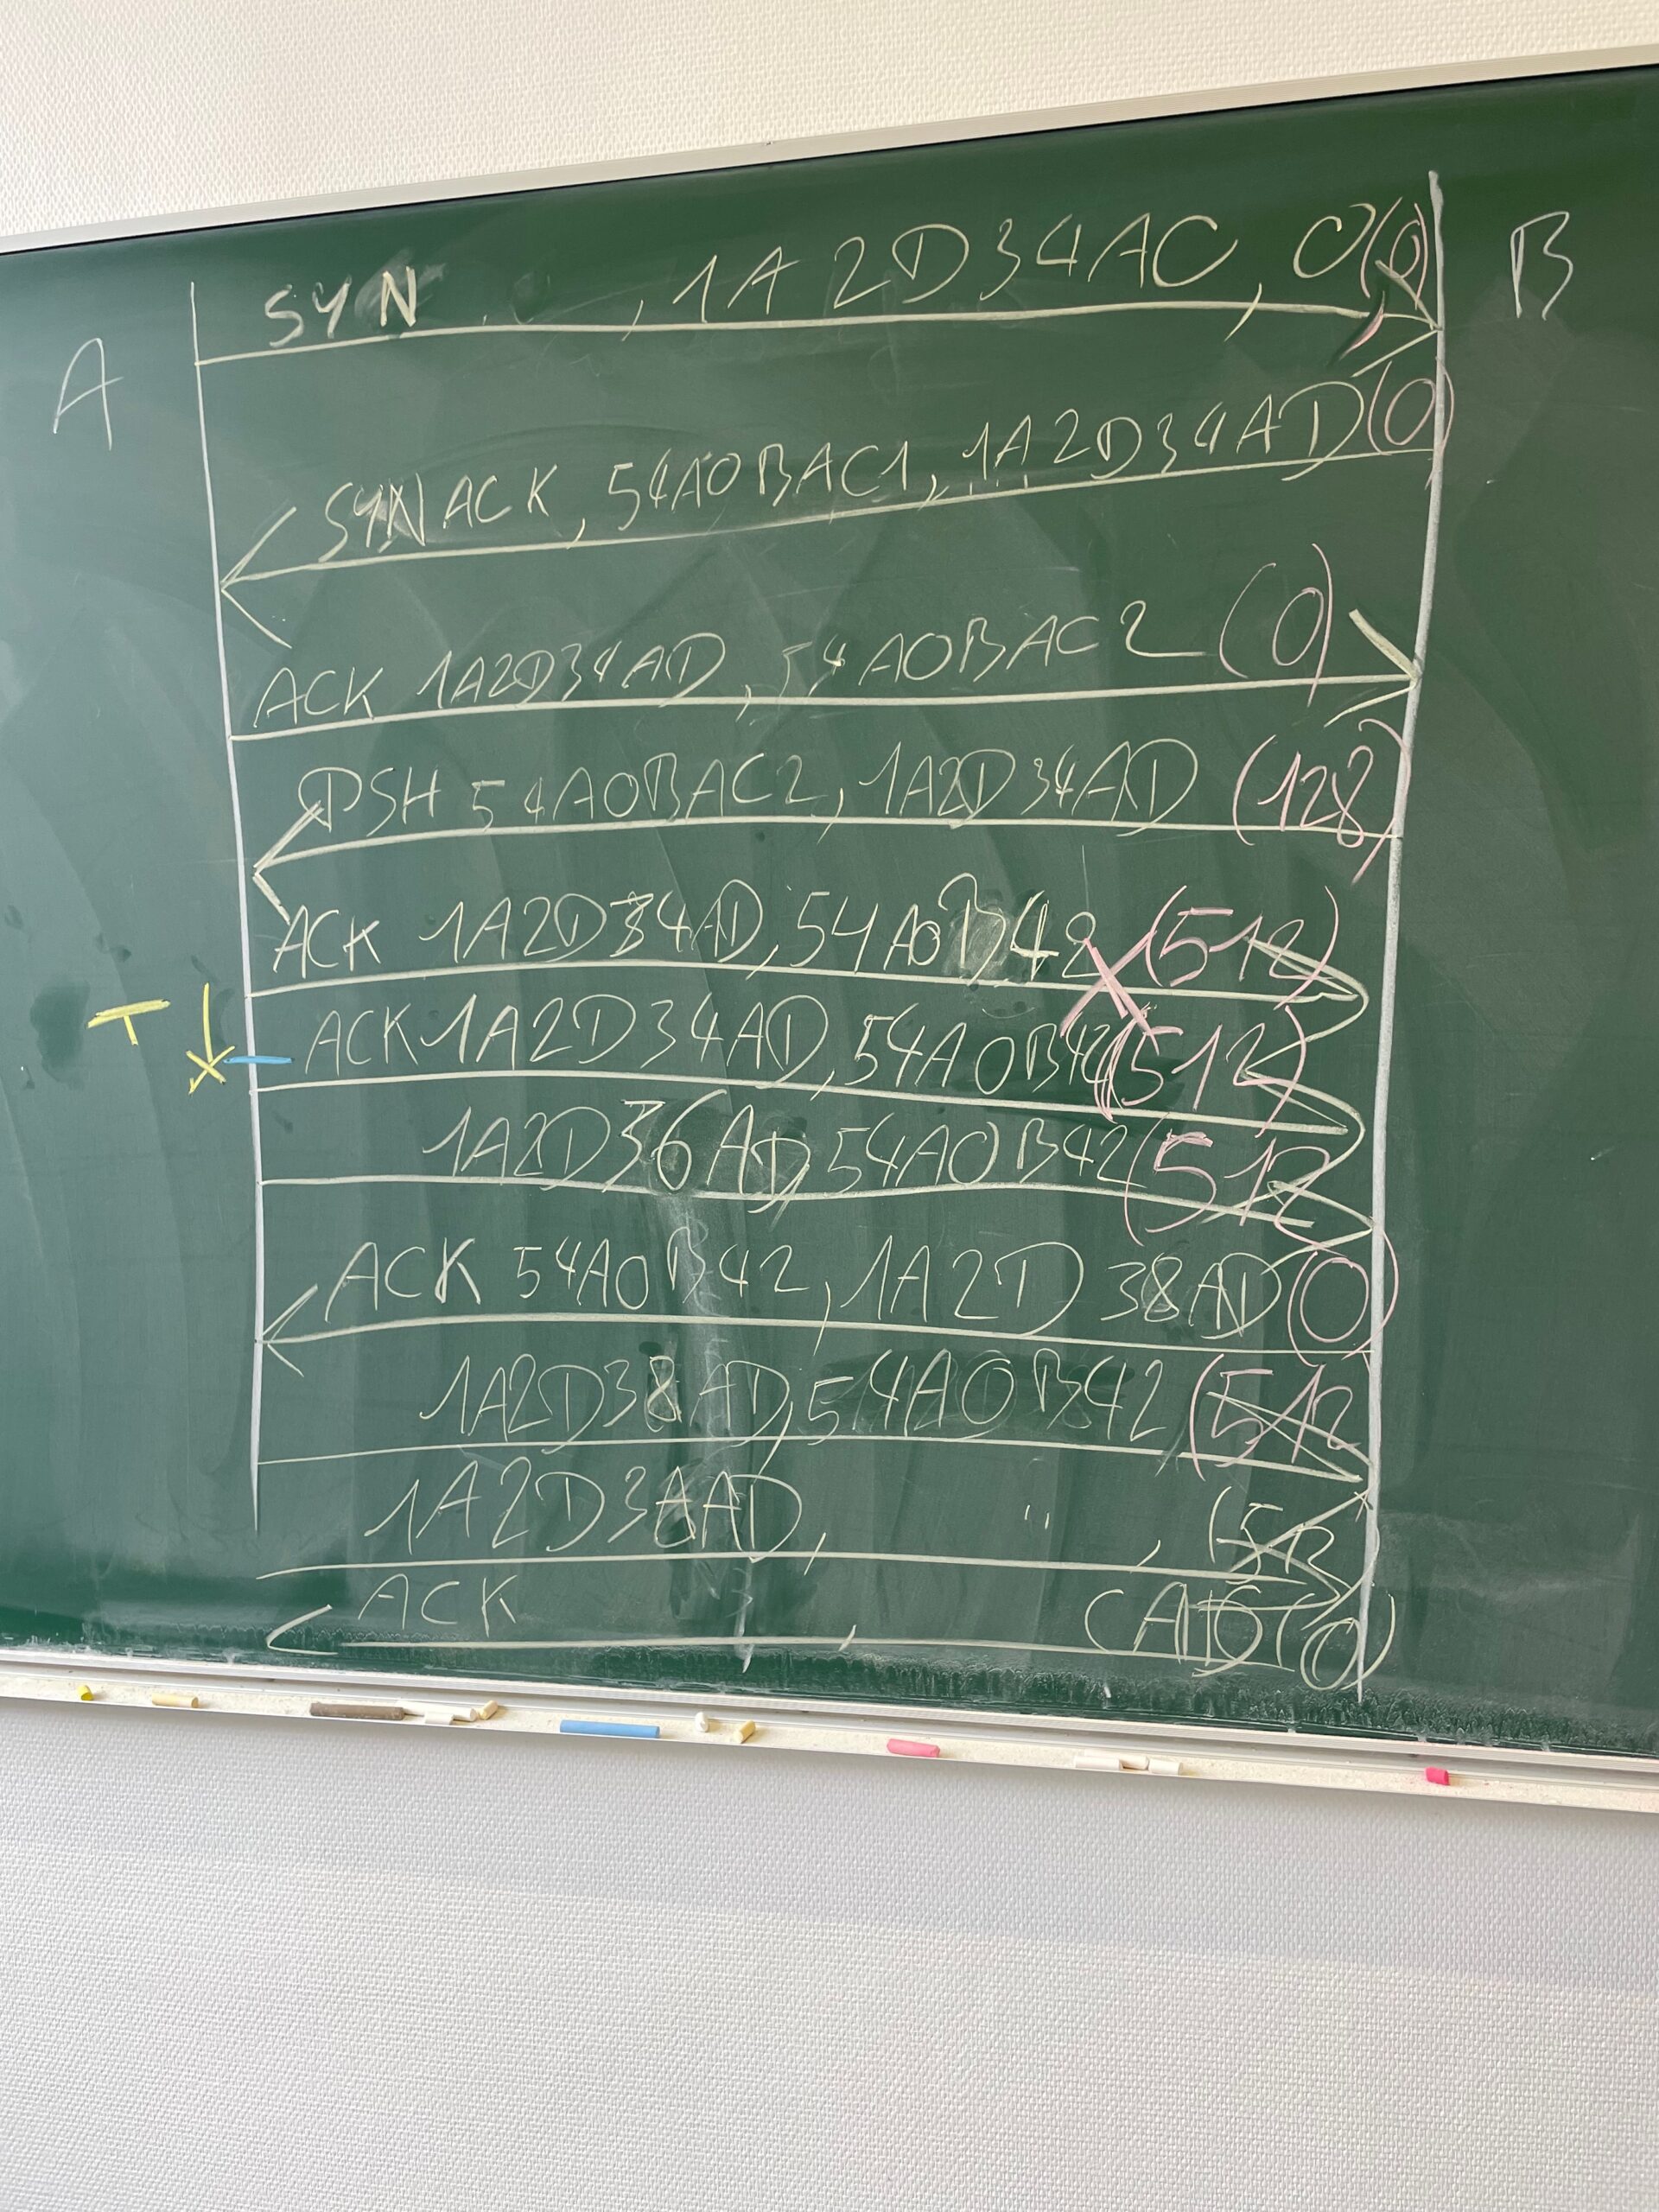 SYN , 1A2D34AC, 0(0)
B
A
SYNACK, 54A0BAC1, 1A2D34AD(0)
ACK 1A2D34AD, 54A0BAC2 (0)
PSH 54A0BAC2, 1A2D34AD (128)
ACK 1A2D34AD, 54A0B42 (512)
T
ACK 1A2D34AD, 54A0B42 (512)
1A2D36AD, 54A0B42 (512)
ACK 54A0B42, 1A2D38AD (0)
1A2D38AD, 54A0B42 (512
1A2D3AAD, " , (512
ACK , (0)